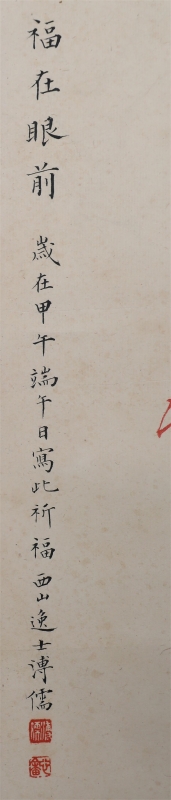 福在眼前
歲在甲午端午日寫此祈福 西山逸士溥儒